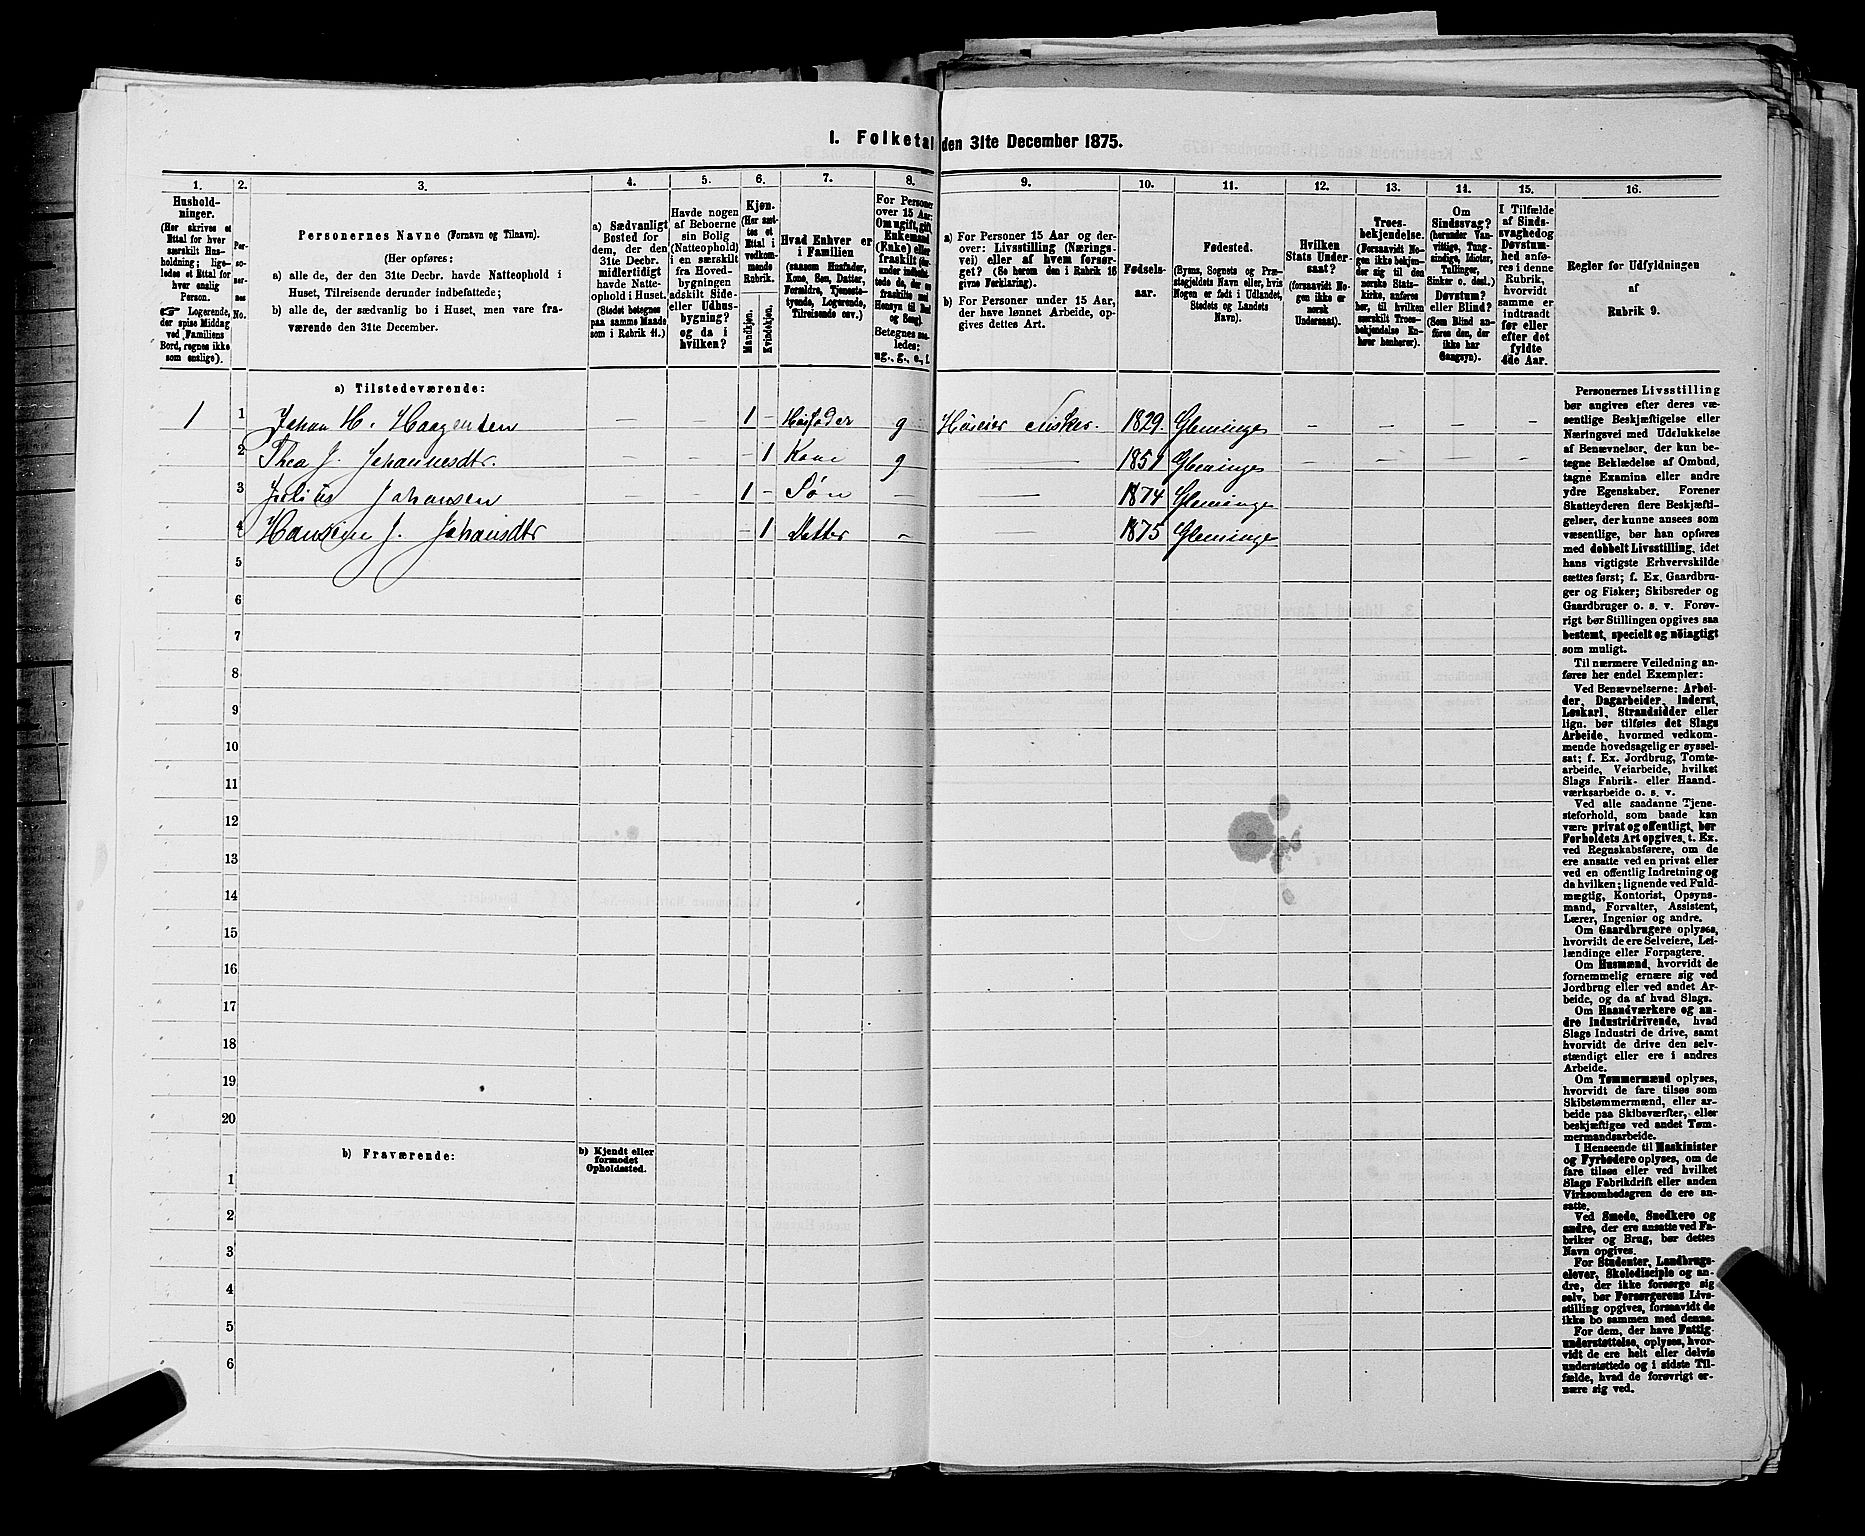 1. Folketal den 31te December 1875.
1. 2. 3. 4. 5. 6. 7. 8. 9. 10. 11. 12. 13. 14. 15. 16.
Hushold-
ninger.
(Her skrives et
Ettal for hver
særskilt Hus-
holdning; lige-
ledes et Ettal for
hver enslig
Person.
☞ Logerende,
der spise Middag
ved Familiens
Bord, regnes ikke
som enslige).
Per-
so-
ner-
nes
No.
Personernes Navne (Fornavn og Tilnavn).
(Her opføres:
a) alle de, der den 31te Decbr. havde Natteophold i
Huset, Tilreisende derunder indbefattede;
b) alle de, der sædvanlig bo i Huset, men vare fra-
værende den 31te December.
a) Sædvanligt
Bosted for
dem, der den
31te Decbr.
midlertidigt
havde Natte-
ophold i Huset.
(Stedet betegnes
paa samme Maade
som i Rubrik 11.)
Havde nogen
af Beboerne
sin Bolig
(Natteophold)
i en særskilt
fra Hoved-
bygningen
adskilt Side-
eller Udhus-
bygning?
og da i
hvilken?
Kjøn.
(Her sæt-
tes et
Ettal i
vedkom-
mende
Rubrik.
Mandkjøn.
Kvindekjøn.
Hvad Enhver er
i Familien
(saasom Husfader,
Kone, Søn, Datter,
Forældre, Tjeneste-
tyende, Logerende,
Tilreisende osv.)
For Personer
over 15 Aar:
Om ugift, gift,
Enkemand
(Enke) eller
fraskilt
Betegnes saa-
ledes:
ug., g., e., f.
a) For Personer 15 Aar og der-
over: Livsstilling (Nærings-
vei) eller af hvem forsør-
get? (Se herom den i Rubrik 16
givne Forklaring).
b) For Personer under 15 Aar,
der have lønnet Arbeide, op-
gives dettes Art.
Fødsels-
aar.
Fødested.
(Byens, Sognets og Præ-
stegjeldets Navn eller, hvis
Nogen er født i Udlandet,
Stedets og Landets
Navn).
Hvilken
Stats Under-
saat?
(forsaavidt No-
gen ikke er
norsk
Undersaat).
Troes-
bekjendelse.
(Forsaavidt No-
gen ikke bekjen-
der sig til den
norske Stats-
kirke, anføres
her, til hvilken
særskilt Troes-
bekjendelse En-
hver henhører).
Om
Sindssvag?
(herunder Van-
vittige, Tung-
sindige, Idioter,
Tullinger,
Sinker o. desl.)
Døvstum?
eller Blind?
(Som Blind an-
føres den, der
ikke har
Gangsyn).
I Tilfælde
af Sinds-
svaghed og
Døvstum-
hed anfø-
res i denne
Rubrik,
hvorvidt
samme er
indtraadt
før eller
efter det
fyldte
4de Aar.
Regler for Udfyldningen
af
Rubrik 9.
a) Tilstedeværende:
1 1 Johan H. Haagensen — — 1 – Husfader g Huseier Fisker. 1829. Gleminge — — — —
2 Thea J. Johannesdtr. — — – 1 Kone g — 1851 Gleminge — — — —
3 Julius Johansen — — 1 – Søn – — 1874 Gleminge
4 Hansine J. Johansdtr – 1 Datter – — 1875 Gleminge
5
6
7
8
9
10
11
12
13
14
15
16
17
18
19
20
b) Fraværende:
b) Kjendt eller
formodet
Opholdssted.
1
2
3
4
5
6
Personernes Livsstilling
bør angives efter deres væ-
sentlige Beskjæftigelse eller
Næringsvei med Udelukkelse
af Benævnelser, der kun be-
tegne Beklædelse af Ombud,
tagne Examina eller andre
ydre Egenskaber. Forener
Skatteyderen flere Beskjæfti-
gelser, der kunne ansees som
væsentlige, bør han opføres
med dobbelt Livsstilling, idet
hans vigtigste Erhvervskilde
sættes først; f. Ex. Gaardbru-
ger og Fisker; Skibsreder og
Gaardbruger o. s. v. Forøv-
rigt bør Stillingen opgives saa
bestemt, specielt og nöiagtigt
som muligt.
Til nærmere Veiledning an-
føres her endel Exempler:
Ved Benævnelserne: Arbei-
der, Dagarbeider, Inderst,
Løskarl, Strandsidder eller
lign. bør tilføies det Slags
Arbeide, hvormed vedkom-
mende hovedsagelig er syssel-
sat; f. Ex. Jordbrug, Tomte-
arbeide, Veiarbeide, hvilket
Slags Fabrik- eller Haand-
værksarbeide o. s. v.
Ved alle saadanne Tjene-
steforhold, som baade kan
være privat og offentligt, bør
Forholdets Art opgives, t. Ex.
ved Regnskabsførere, om de
ere ansatte ved en privat eller
ved en offentlig Indretning og
da hvilken; lignende ved Fuld-
mægtig, Kontorist, Opsyns-
mand, Forvalter, Assistent,
Lærer, Ingeniør og andre.
Om Gaardbrugere oplyses,
hvorvidt de ere Selveiere, Lei-
lændinge eller Forpagtere.
Om Husmænd, hvorvidt de
fornemmelig ernære sig ved
Jordbrug eller ved andet Ar-
beide, og da af hvad Slags.
Om Haandværkere og an-
dre Industridrivende, hvad
Slags Industri de drive, samt
hvorvidt de drive den selv-
stændigt eller ere i andres
Arbeide.
Om Tømmermænd oplyses,
hvorvidt de fare tilsøs som
Skibstømmermænd, eller ar-
beide paa Skibsværfter, eller
beskjæftiges ved andet Tøm-
mermandsarbeide.
I Henseende til Maskinister
og Fyrbødere oplyses, om de
fare tilsøs eller ved hvilket
Slags Fabrikdrift eller anden
Virksomhedsgren de ere an-
satte.
Ved Smede, Snedkere og
andre, der ere ansatte ved Fa-
briker og Brug, bør dettes
Navn opgives.
For Studenter, Landbrugs-
elever, Skoledisciple og an-
dre, der ikke forsørge sig
selv, bør Forsørgerens Livs-
stilling opgives, forsaavidt de
ikke bo sammen med denne.
For dem, der have Fattig-
understøttelse, oplyses, hvor-
vidt de ere helt eller delvis
understøttede og i sidste Til-
fælde, hvad de forøvrigt er-
nære sig ved.